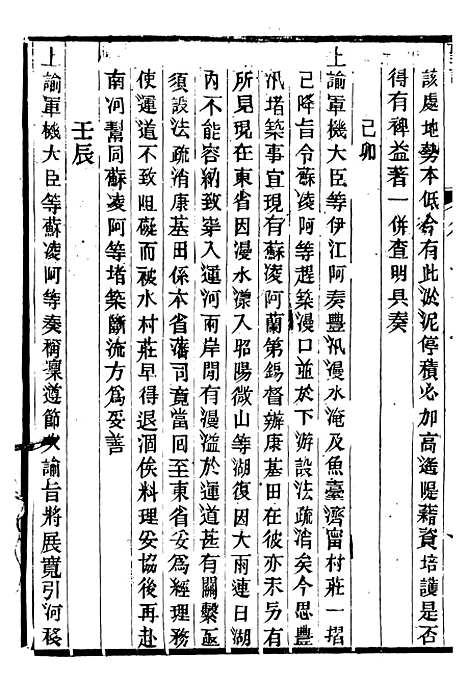 該處地勢本低今有此淤泥停積必加高遙隄藉資培護是否
得有裨益著一併查明具奏
己卯
上諭軍機大臣等伊江阿奏豐汛漫水淹及魚臺濟甯村莊一摺
已降旨令蘇凌阿等趕築漫口並於下游設法疏消矣今思豐
汛堵築事宜現有蘇凌阿蘭第錫督辦康基田在彼亦未另有
所見現在東省因漫水灌入昭陽微山等湖復因大雨連日湖
內不能容納致牽入運河兩岸閒有漫溢於運道甚有關繫亟
須設法疏消康基田係本省藩司竟當回至東省妥爲經理務
使運道不致阻礙而被水村莊早得退涸俟料理妥協後再赴
南河幫同蘇凌阿等堵築斷流方爲妥善
壬辰
上諭軍機大臣等蘇凌阿等奏稱稟遵節次諭旨將展寬引河移